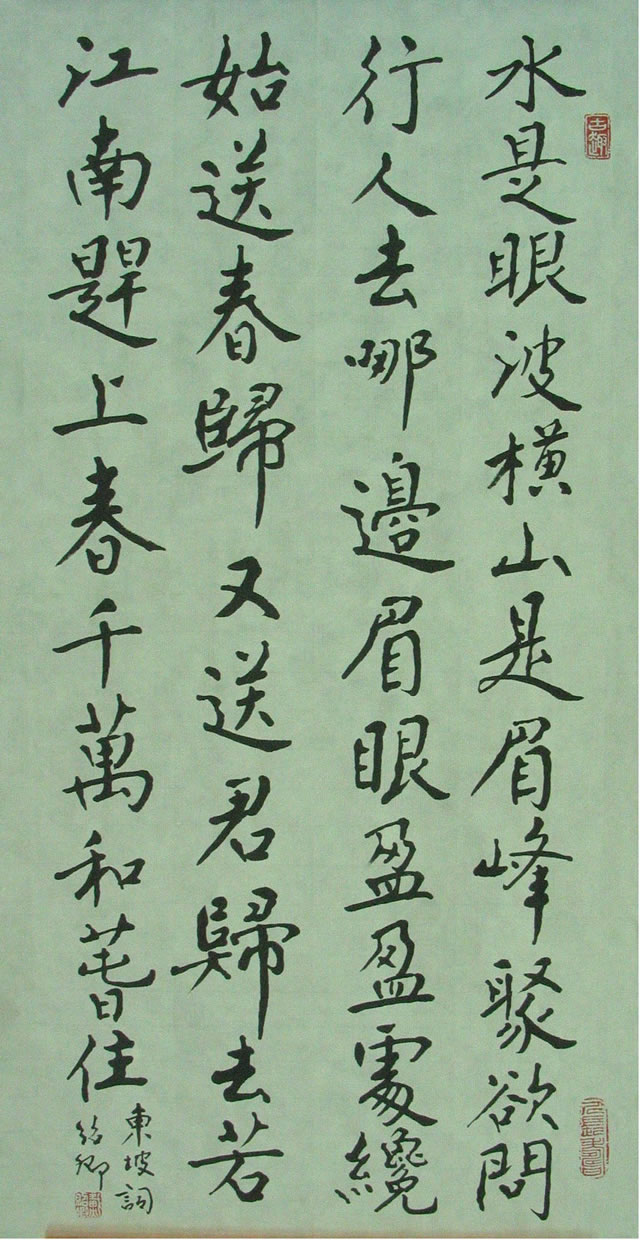 古趣
水是眼波橫山是眉峰聚欲問
行人去哪邊眉眼盈盈處纔
始送春歸又送君歸去若
江南趕上春千萬和萅住
東坡詞
紹卿